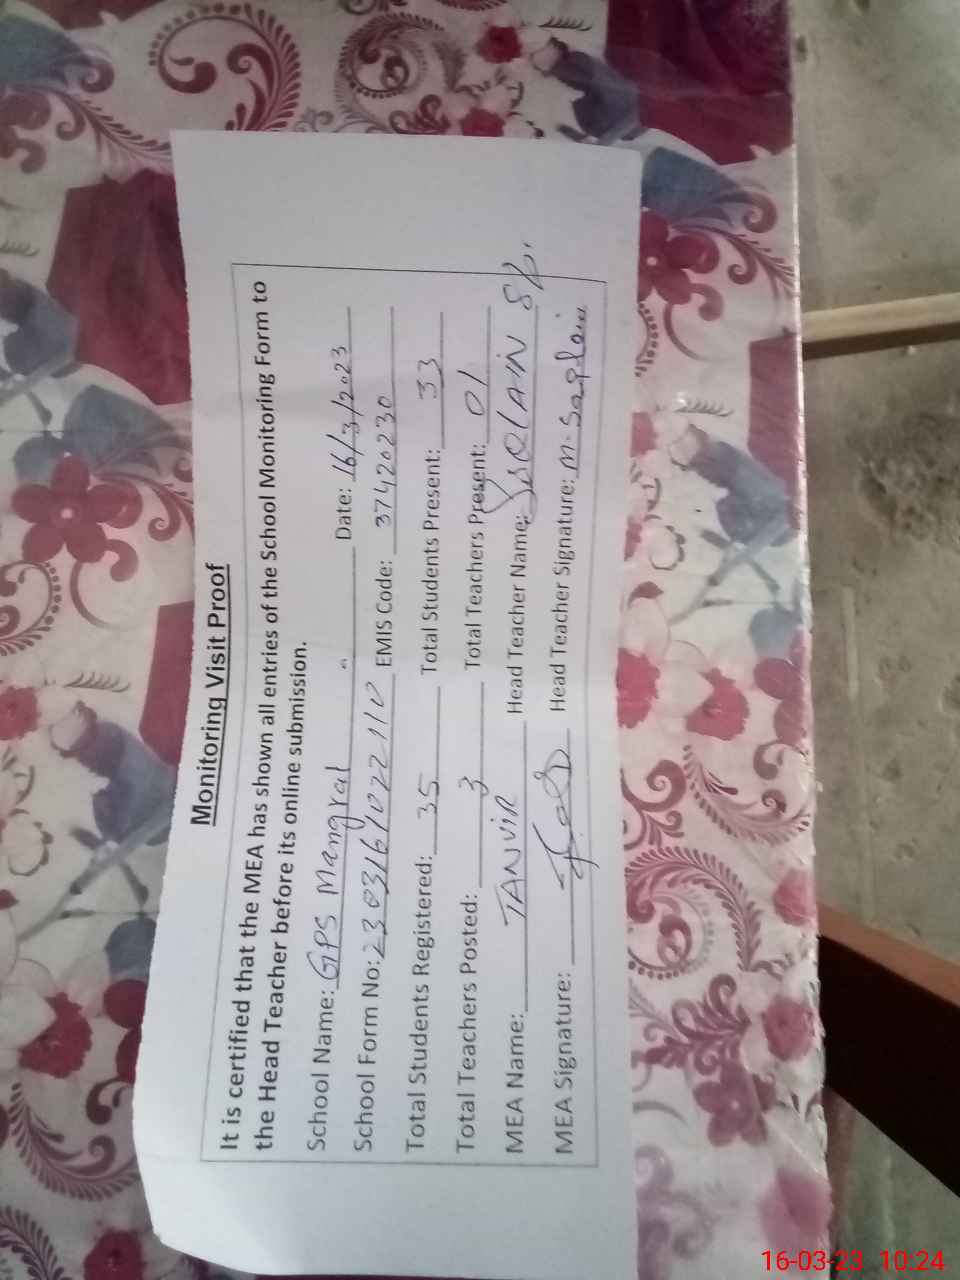 Monitoring Visit Proof
It is certified that the MEA has shown all entries of the School Monitoring Form to
the Head Teacher before its online submission.
School Name: GPS Mangral Date: 16/3/2023
School Form No: 230316102210 EMIS Code: 37420230
Total Students Registered: 35 Total Students Present: 33
Total Teachers Posted: 3 Total Teachers Present: 01
MEA Name: TANVIR Head Teacher Name:
MEA Signature: Head Teacher Signature: M. Saqlain
16-03-23 10:24